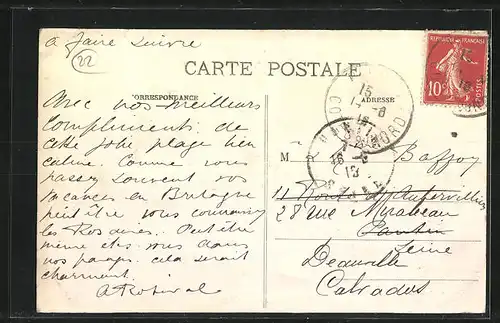 à faire suivre
22
CARTE POSTALE
CORRESPONDANCE
ADRESSE
RÉPUBLIQUE FRANÇAISE
10c
POSTES
Avec nos meilleurs
compliments de
cette jolie plage bien
calme. Comme vous
passez souvent vos
vacances en Bretagne
peut être vous connaissez
les Peut être
même êtes vous dans
nos parages. cela serait
charmant.
M Baffoy
11 Route d'Aubervilliers
28 rue Mirabeau
Pantin
Seine
Deauville
Calvados
NORD